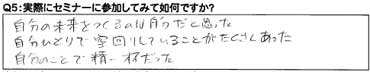 Q5:実際にセミナーに参加してみて如何ですか?
自分の未来をつくるのは自分だと思った
自分ひとりで空回りしていることがたくさんあった
自分のことで精一杯だった